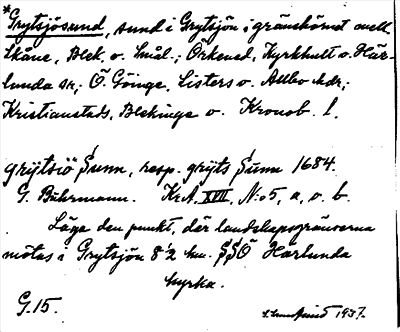 *Grytsjösund, sund i Grytsjön i gränshörnet mell.
Skåne, Blek. o. Smål.; Örkened, Kyrkhult o. Här-
lunda snr; Ö. Göinge, Listers o. Allbo hdr;
Kristianstads, Blekinge o. Kronob. l.
grÿtsiö Sunn, resp. grÿts Sunn 1684.
G. Buhrmann. KrA, XVII, N:o 5, a, o. b.
Läge den punkt, där landskapsgränserna
mötas i Grytsjön 8½ km. SSÖ Härlunda
kyrka.
G.15.
1937.